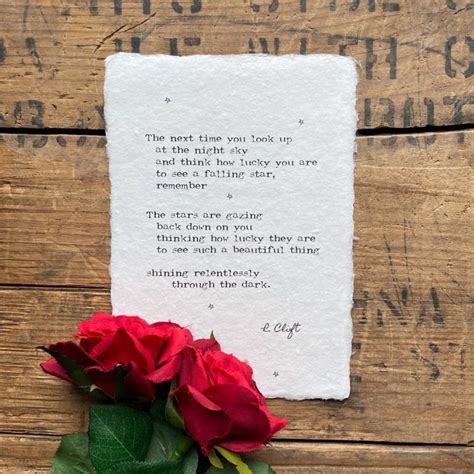 The next time you look up
at the night sky
and think how lucky you are
to see a falling star,
remember
The stars are gazing
back down on you
thinking how lucky they are
to see such a beautiful thing
shining relentlessly
through the dark.
C. Clift